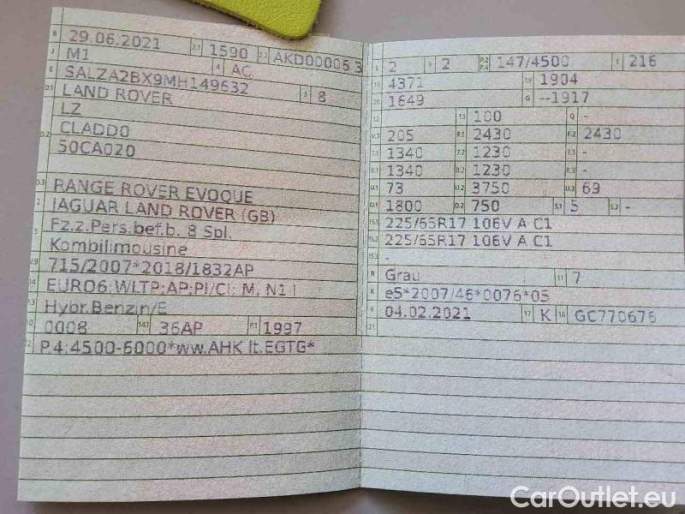 29.06.2021 1590 AKD00006 3
M1 AC
SALZA2BX9MH149632 8
LAND ROVER
LZ
CLADD0
50CA020
RANGE ROVER EVOQUE
JAGUAR LAND ROVER (GB)
Fz.z.Pers.bef.b. 8 Spl.
Kombilimousine
715/2007*2018/1832AP
EURO6;WLTP;AP;PI/CI; M, N1 I
Hybr.Benzin/E
0008 36AP 1997
P4:4500-6000*ww.AHK lt.EGTG*
2 2 147/4500 216
4371 1904
1649 --1917
100 -
205 2430 2430
1340 1230 -
1340 1230 -
73 3750 69
1800 750 5 -
225/65R17 106V A C1
225/65R17 106V A C1
-
Grau 7
e5*2007/46*0076*05
04.02.2021 K GC770676
CarOutlet.eu